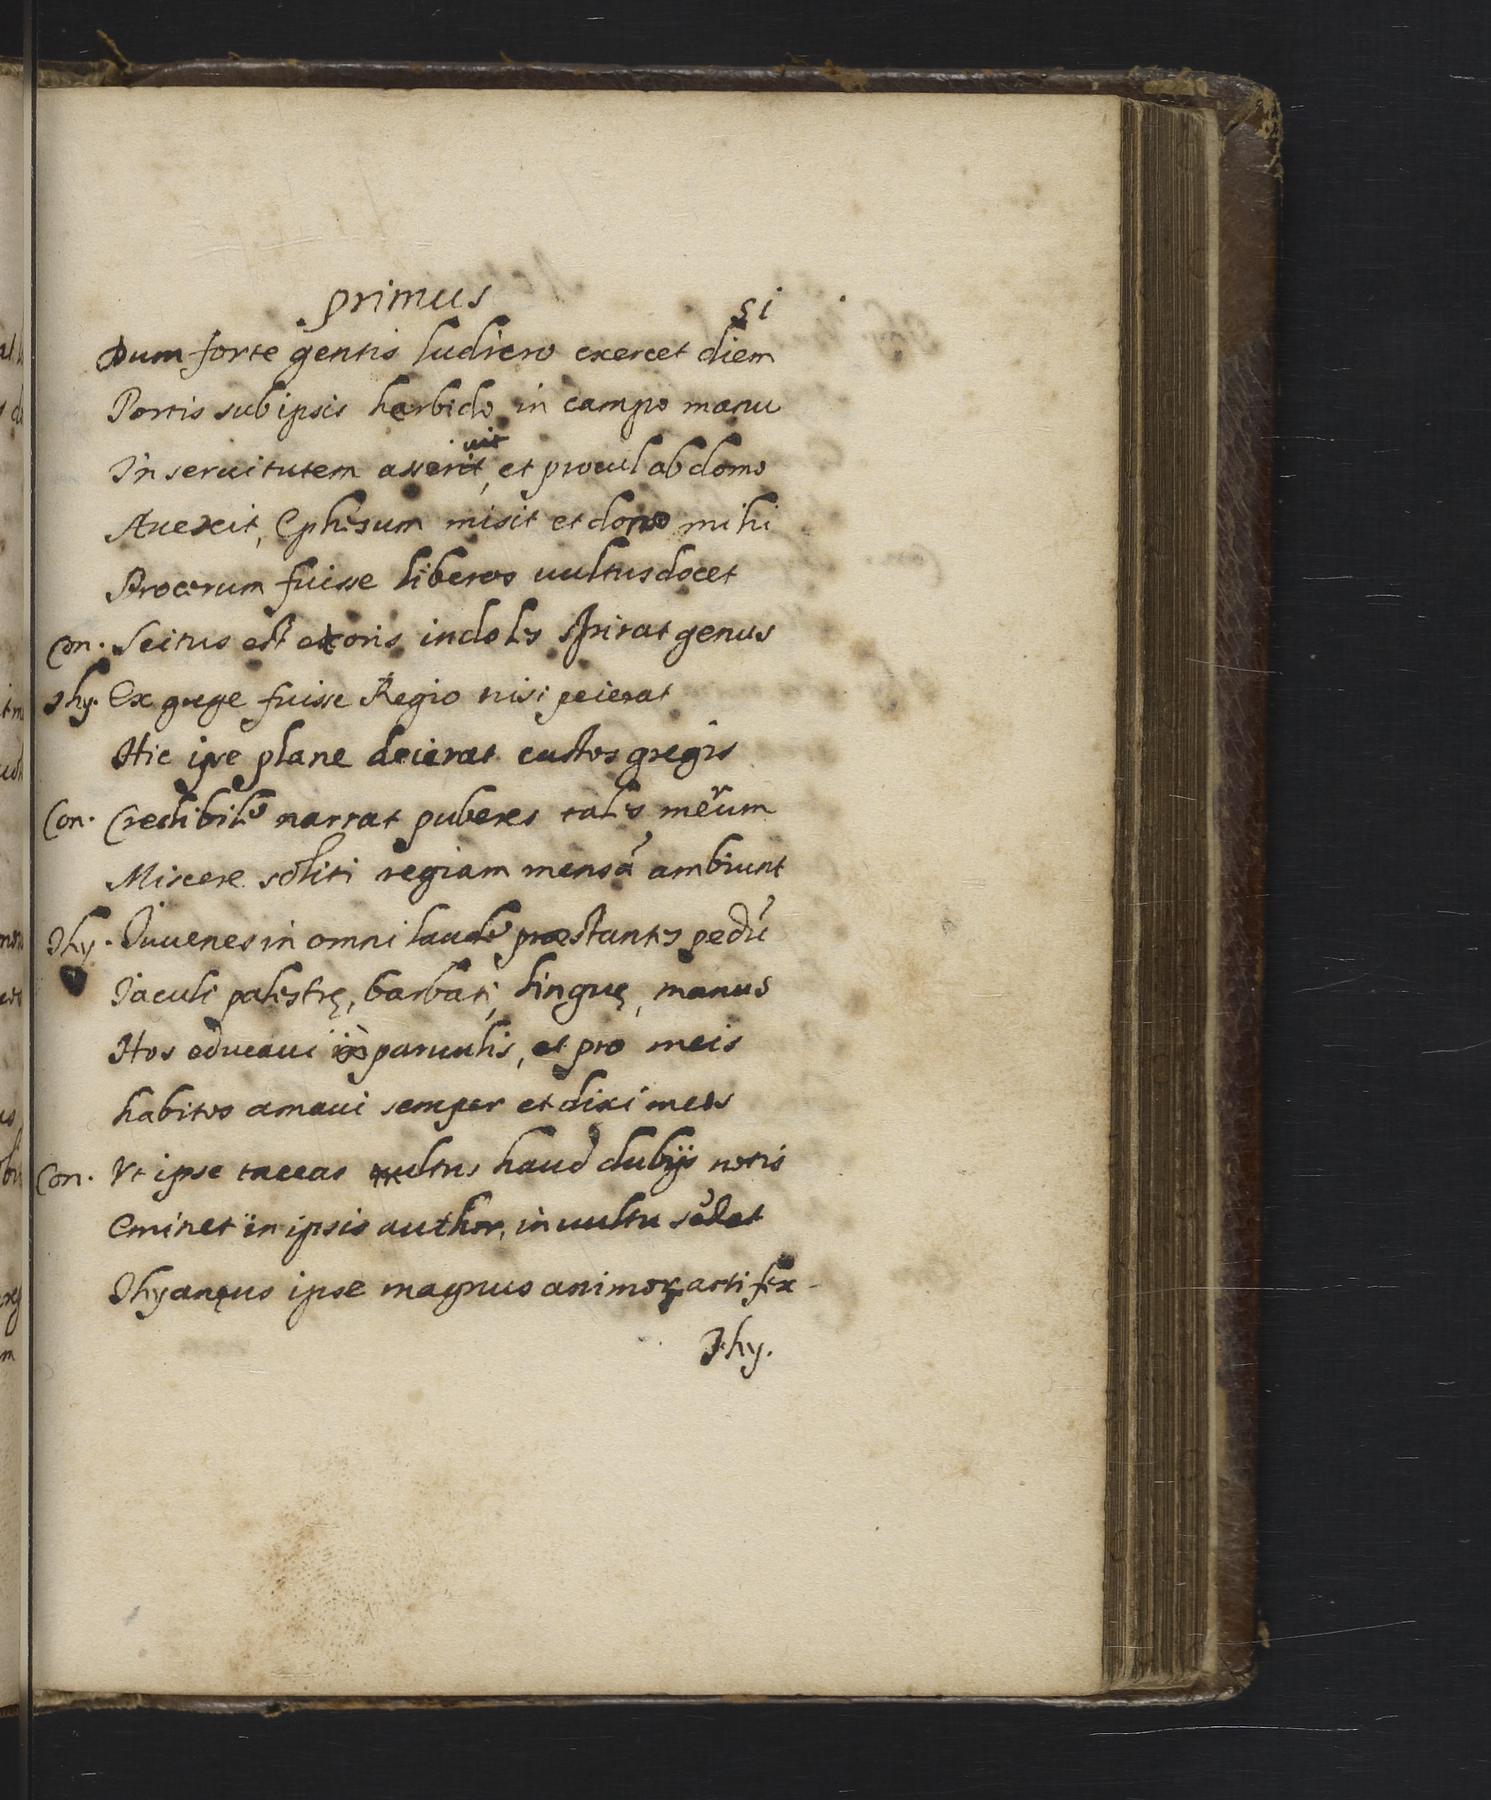 primus 51
Dum forte gentis ludicro exercet diem
Portis sub ipsis herbido in campo manu
In seruitutem asseruit, et procul ab domo
Auexit, Ephesum misit et dono mihi
Procerum fuisse liberos uultus docet
Con. Scitus est et oris indoles spirat genus
Thy. Ex grege fuisse Regio nisi peierat
Hic ipse plane deierat custos gregis
Con. Credibile narrat puberes tales merum
Miscere soliti regiam mensã ambiunt
Thy. Iuuenes in omni laude præstantes pedũ
Iaculi palestrę, barbati, linguę, manus
Hos educaui paruulis, et pro meis
habitos amaui semper et dixi meos
Con. Vt ipse taceas uultus haud dubijs notis
Eminet in ipsis author, in uultu sedet
Thyanęus ipse magnus animoꝝ artifex
Thy.